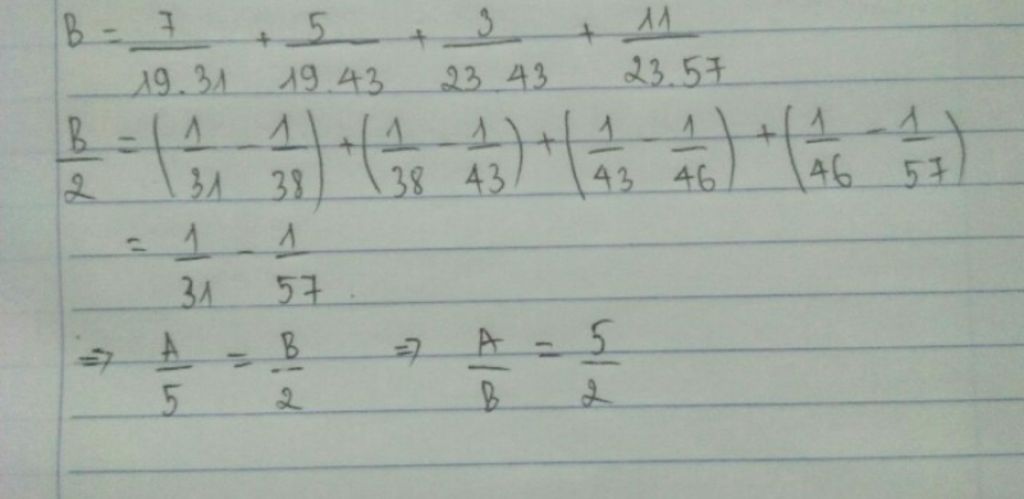 B = 7/19.31 + 5/19.43 + 3/23.43 + 11/23.57
B/2 = (1/31 - 1/38) + (1/38 - 1/43) + (1/43 - 1/46) + (1/46 - 1/57)
= 1/31 - 1/57.
=> A/5 = B/2 => A/B = 5/2